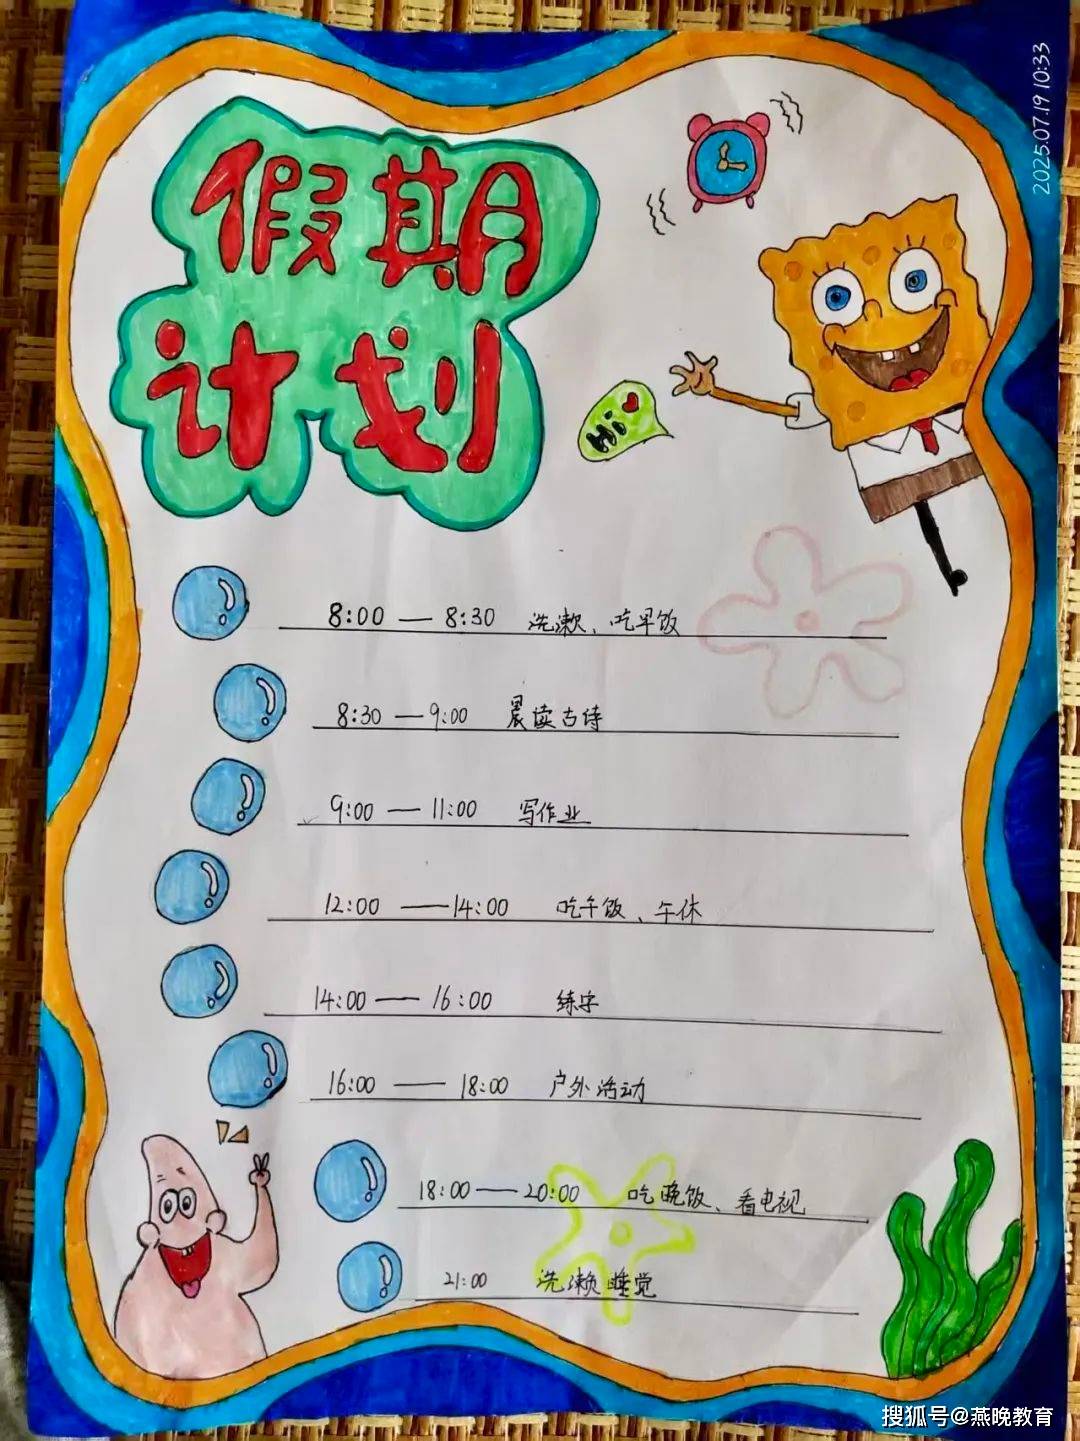 2025.07.19 10:33
假期
计划
Hi
8:00 — 8:30 洗漱、吃早饭
8:30 — 9:00 晨读古诗
9:00 — 11:00 写作业
12:00 — 14:00 吃午饭、午休
14:00 — 16:00 练字
16:00 — 18:00 户外活动
18:00 — 20:00 吃晚饭、看电视
21:00 洗漱睡觉
搜狐号@燕晚教育